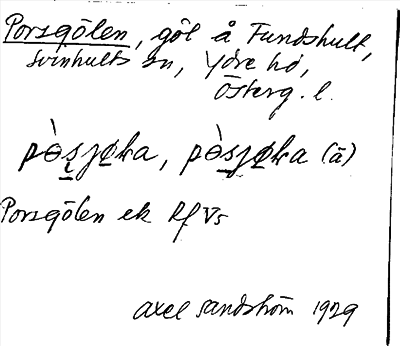 Porsgölen, göl å Fundshult,
Svinhults sn, Ydre hd,
Österg. l.
Porsgölen ek Rf V5
Axel Sandström 1929